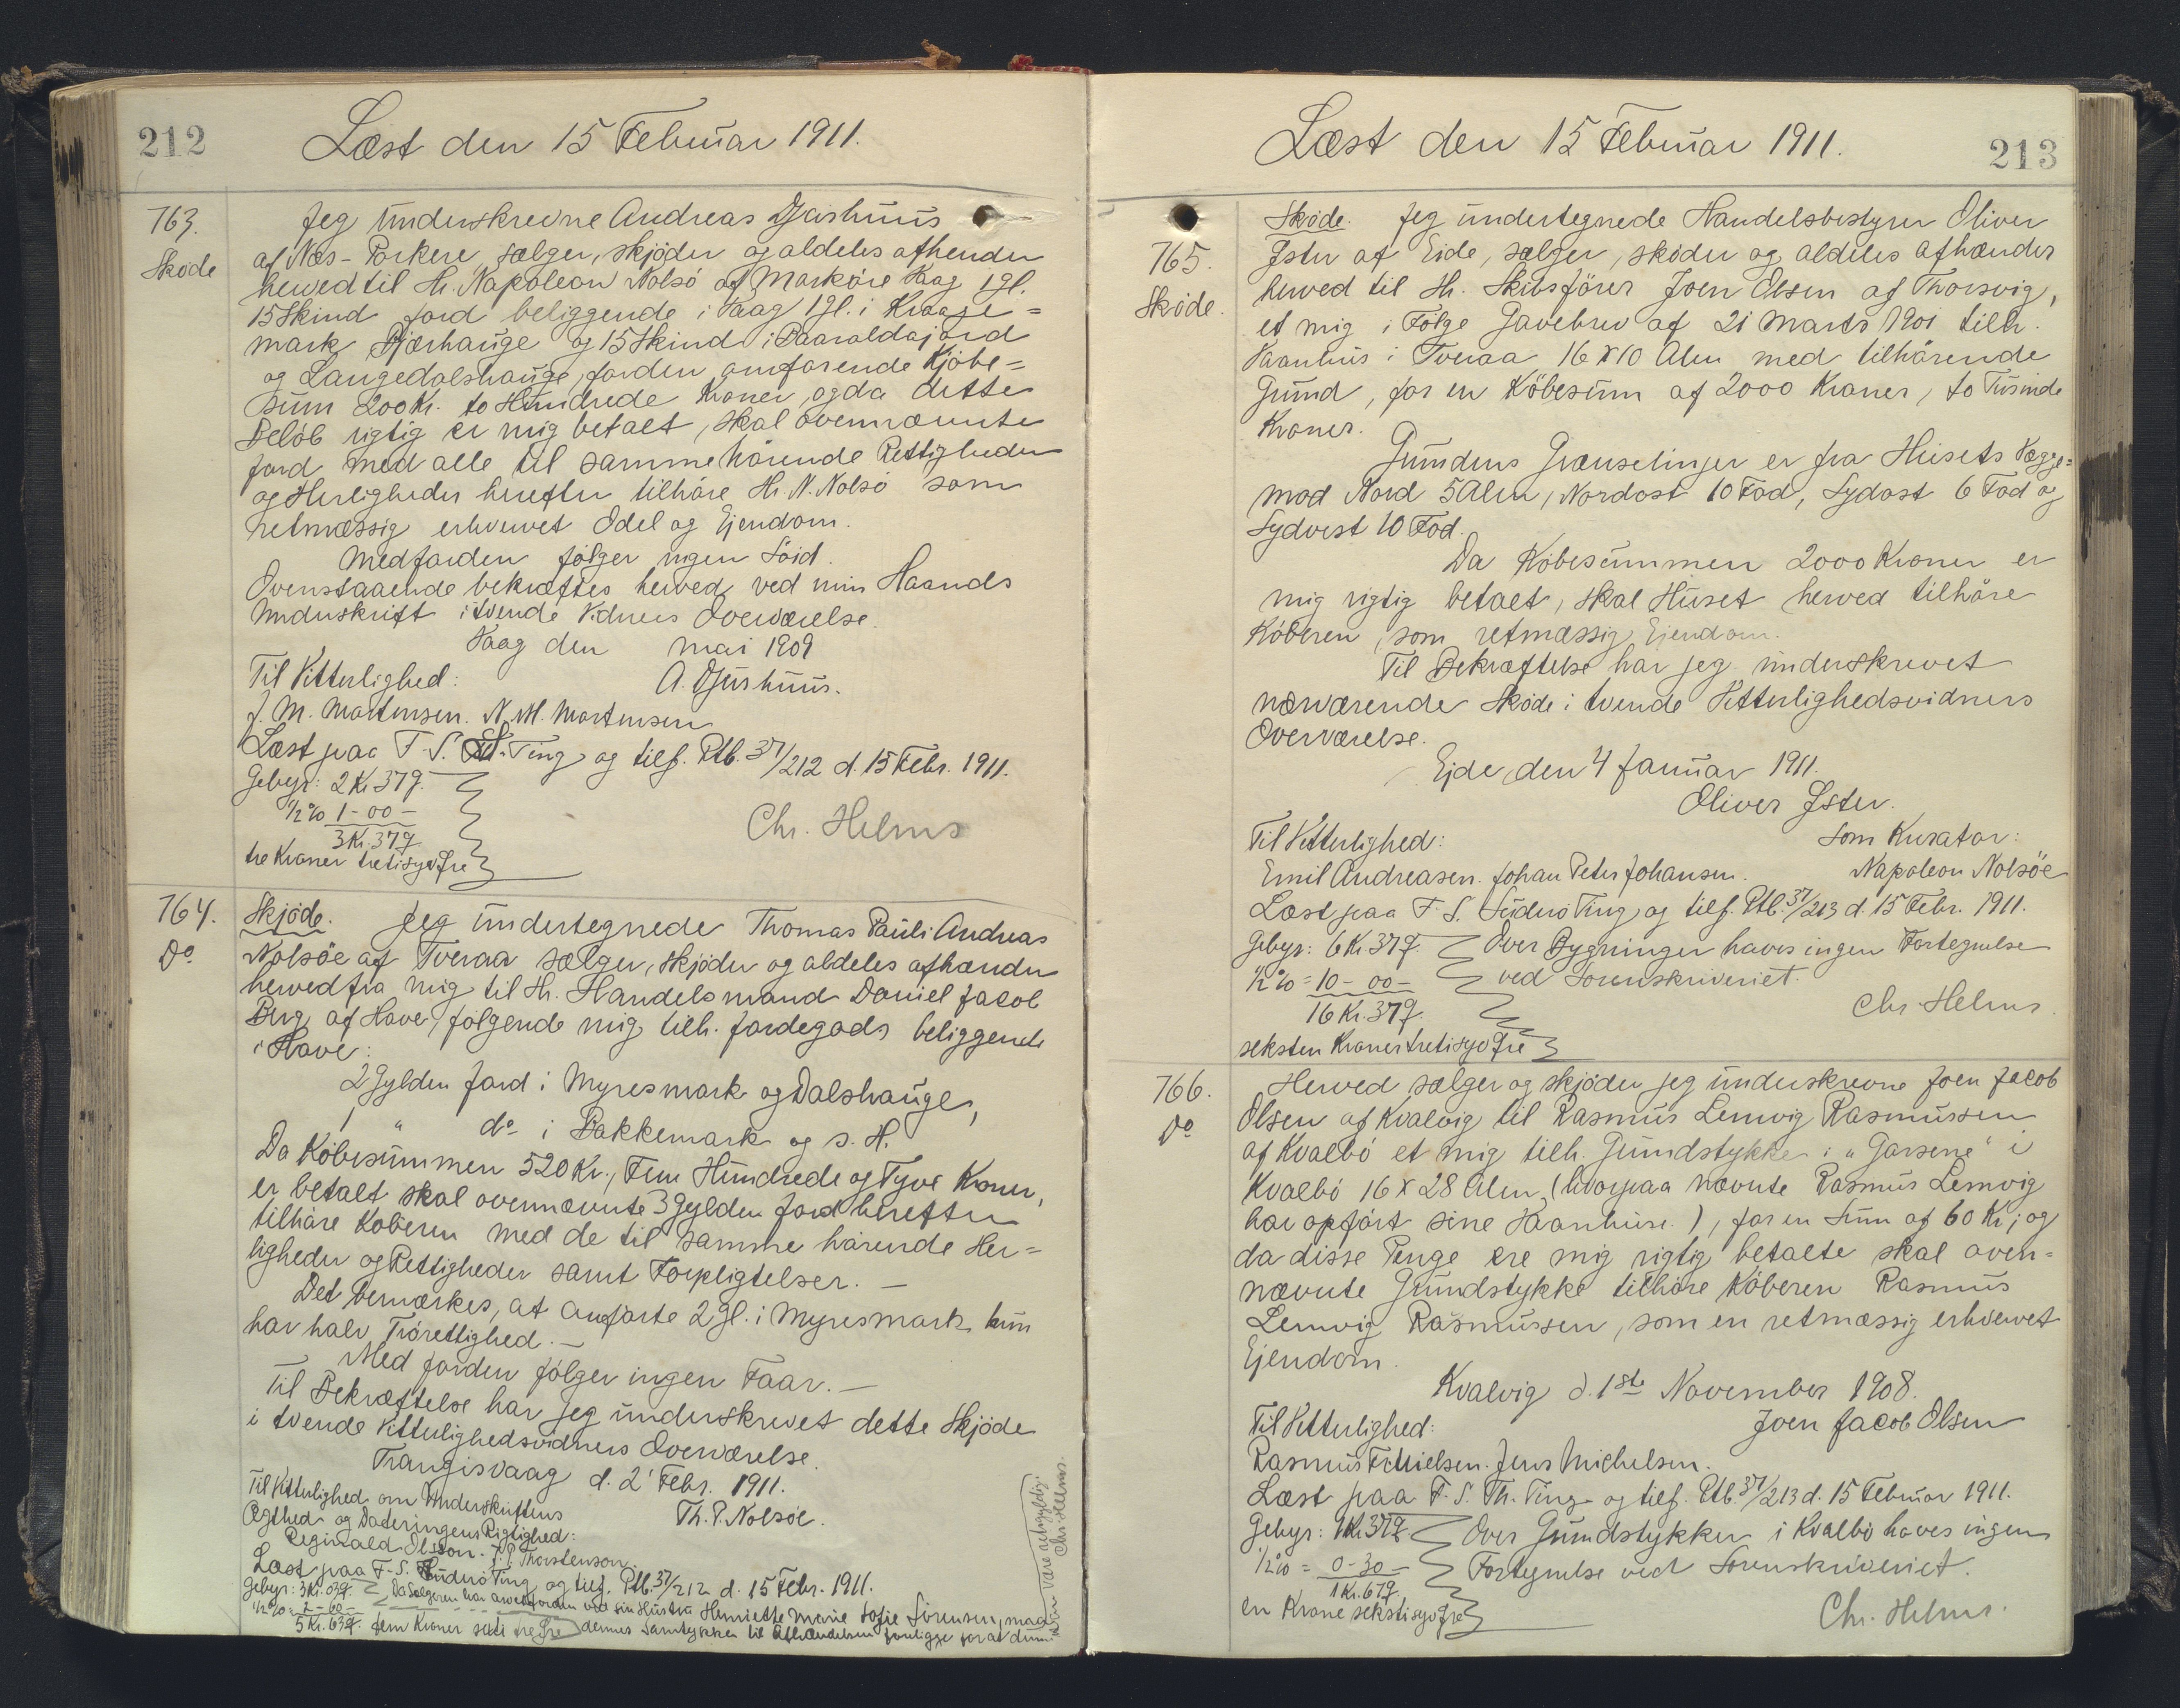 212
Læst den 15 Februar 1911.
763.
Skøde
Jeg underskrevne Andreas Djurhuus
af Næs-Porkere sælger, skjøder og aldeles afhender
herved til Hr. Napoleon Nolsö af Marköre Vaag 1gl.
15 Skind Jord beliggende i Vaag 1gl. i Kraage=
mark Bjærhauge og 15 Skind i Paaraldajord
og Langedalshauge, Jorden omforende Kjöbe=
sum 200 Kr. to Hundrede Kroner, og da dette
Belöb rigtig er mig betalt, skal ovennævnte
Jord med alle til samme hörende Rettigheder
og Herligheder herefter tilhöre Hr. N. Nolsö som
retmæssig erhvervet Odel og Ejendom.
Med Jorden fölger ingen Söid.
Ovenstaaende bekræftes herved ved min Haands
Underskrift i tvende Vidners Overværelse.
Vaag den mai 1909
Til Vitterlighed: A. Djurhuus.
J. M. Mortensen. N. M. Mortensen
Læst paa F. S. Ting og tilf. Ptb. 37/212 d. 15 Febr. 1911.
Gebyr: 2 Kr 37 Ø.
1/2 % 1-00-
3 Kr. 37 Ø
tre Kroner tretisyv Øre
Chr. Helms
764.
Do
Skjöde. Jeg undertegnede Thomas Pauli Andreas
Nolsöe af Tveraa sælger, skjöder og aldeles afhænder
herved fra mig til Hr. Handelsmand Daniel Jacob
Berg af Hove, følgende mig tilh. Jordegods beliggende
i Hove:
2 Gylden Jord i Myresmark og Dalshauge,
1 " do i Bakkemark og s. H.
Da Köbesummen 520 Kr., Fem Hundrede og Tyve Kroner,
er betalt skal ovennævnte 3 Gylden Jord herefter
tilhöre Köberen med de til samme hörende Her=
ligheder og Rettigheder samt Forpligtelser. —
Det bemærkes, at anförte 2 gl. i Myresmark kun
har halv Trörettighed. —
Med Jorden fölger ingen Faar. —
Til Bekræftelse har jeg underskrevet dette Skjöde
i tvende Vitterlighedsvidners Overværelse.
Trangisvaag d. 2' Febr. 1911.
Til Vitterlighed om Underskriftens Th. P. Nolsöe.
Ægthed og Dateringens Rigtighed:
Reginald Olsson. J. P. Thorstenson.
Læst paa F. S. Suderö Ting og tilf. Ptb. 37/212 d. 15 Febr. 1911.
Gebyr: 3 Kr. 03 Ø. Da Sælgeren har ved sin Hustru Henriette Marie Sofie Sörensen, maa
1/2 % = 2-60-
5 Kr. 63 Ø. fem Kroner seksti tre Øre dennes Samtykke til Afhændelsen foreligge for at denne
kan være retsgyldig.
Chr. Helms.
213
Læst den 15 Februar 1911.
765.
Skøde.
Skøde. Jeg undertegnede Handelsbestyrer Oliver
Øster af Eide, sælger, skøder og aldeles afhænder
herved til Hr. Skibsfører Joen Olsen af Thorsvig,
et mig i Følge Gavebrev af 21 Marts 1901 tilh.
Vaanhus i Tveraa 16 x 10 Alen med tilhörende
Grund, for en Köbesum af 2000 Kroner, to Tusinde
Kroner.
Grundens Grænselinjer er fra Husets Vægge=
mod Nord 5 Alen, Nordost 10 Fod, Sydost 6 Fod og
Sydvest 10 Fod.
Da Köbesummen 2000 Kroner er
mig rigtig betalt, skal Huset herved tilhöre
Köberen, som retmæssig Ejendom.
Til Bekræftelse har jeg underskrevet
nærværende Skøde i tvende Vitterlighedsvidners
Overværelse.
Ejde, den 4 Januar 1911.
Oliver Øster.
Til Vitterlighed: Som Kurator:
Emil Andreasen. Johan Peter Johansen. Napoleon Nolsöe
Læst paa F. S. Suderö Ting og tilf. Ptb. 37/213 d. 15 Febr. 1911.
Gebyr: 6 Kr. 37 Ø. Over Bygninger haves ingen Fortegnelse
1/2 % = 10-00- ved Sorenskriveriet.
16 Kr. 37 Ø. Chr. Helms
seksten Kroner tretisyv Øre
766.
Do
Herved sælger og skjöder jeg underskrevne Joen Jacob
Olsen af Kvalvig til Rasmus Lemvig Rasmussen
af Kvalbö et mig tilh. Grundstykke i "Garsene" i
Kvalbö 16 x 28 Alen (hvorpaa nævnte Rasmus Lemvig
har opført sine Vaanhuse.), for en Sum af 60 Kr; og
da disse Penge ere mig rigtig betalte skal oven=
nævnte Grundstykke tilhöre Köberen Rasmus
Lemvig Rasmussen, som en retmæssig erhvervet
Ejendom.
Kvalvig d. 1ste November 1908.
Til Vitterlighed: Joen Jacob Olsen
Rasmus F. Nielsen. Jens Michelsen.
Læst paa F. S. Th. Ting og tilf. Ptb. 37/213 d. 15 Februar 1911.
Gebyr: 1 Kr. 37 Ø Over Grundstykker i Kvalbö haves ingen
1/2 % = 0-30- Fortegnelse ved Sorenskriveriet.
1 Kr. 67 Ø
en Krone sekstisyv Øre
Chr. Helms.